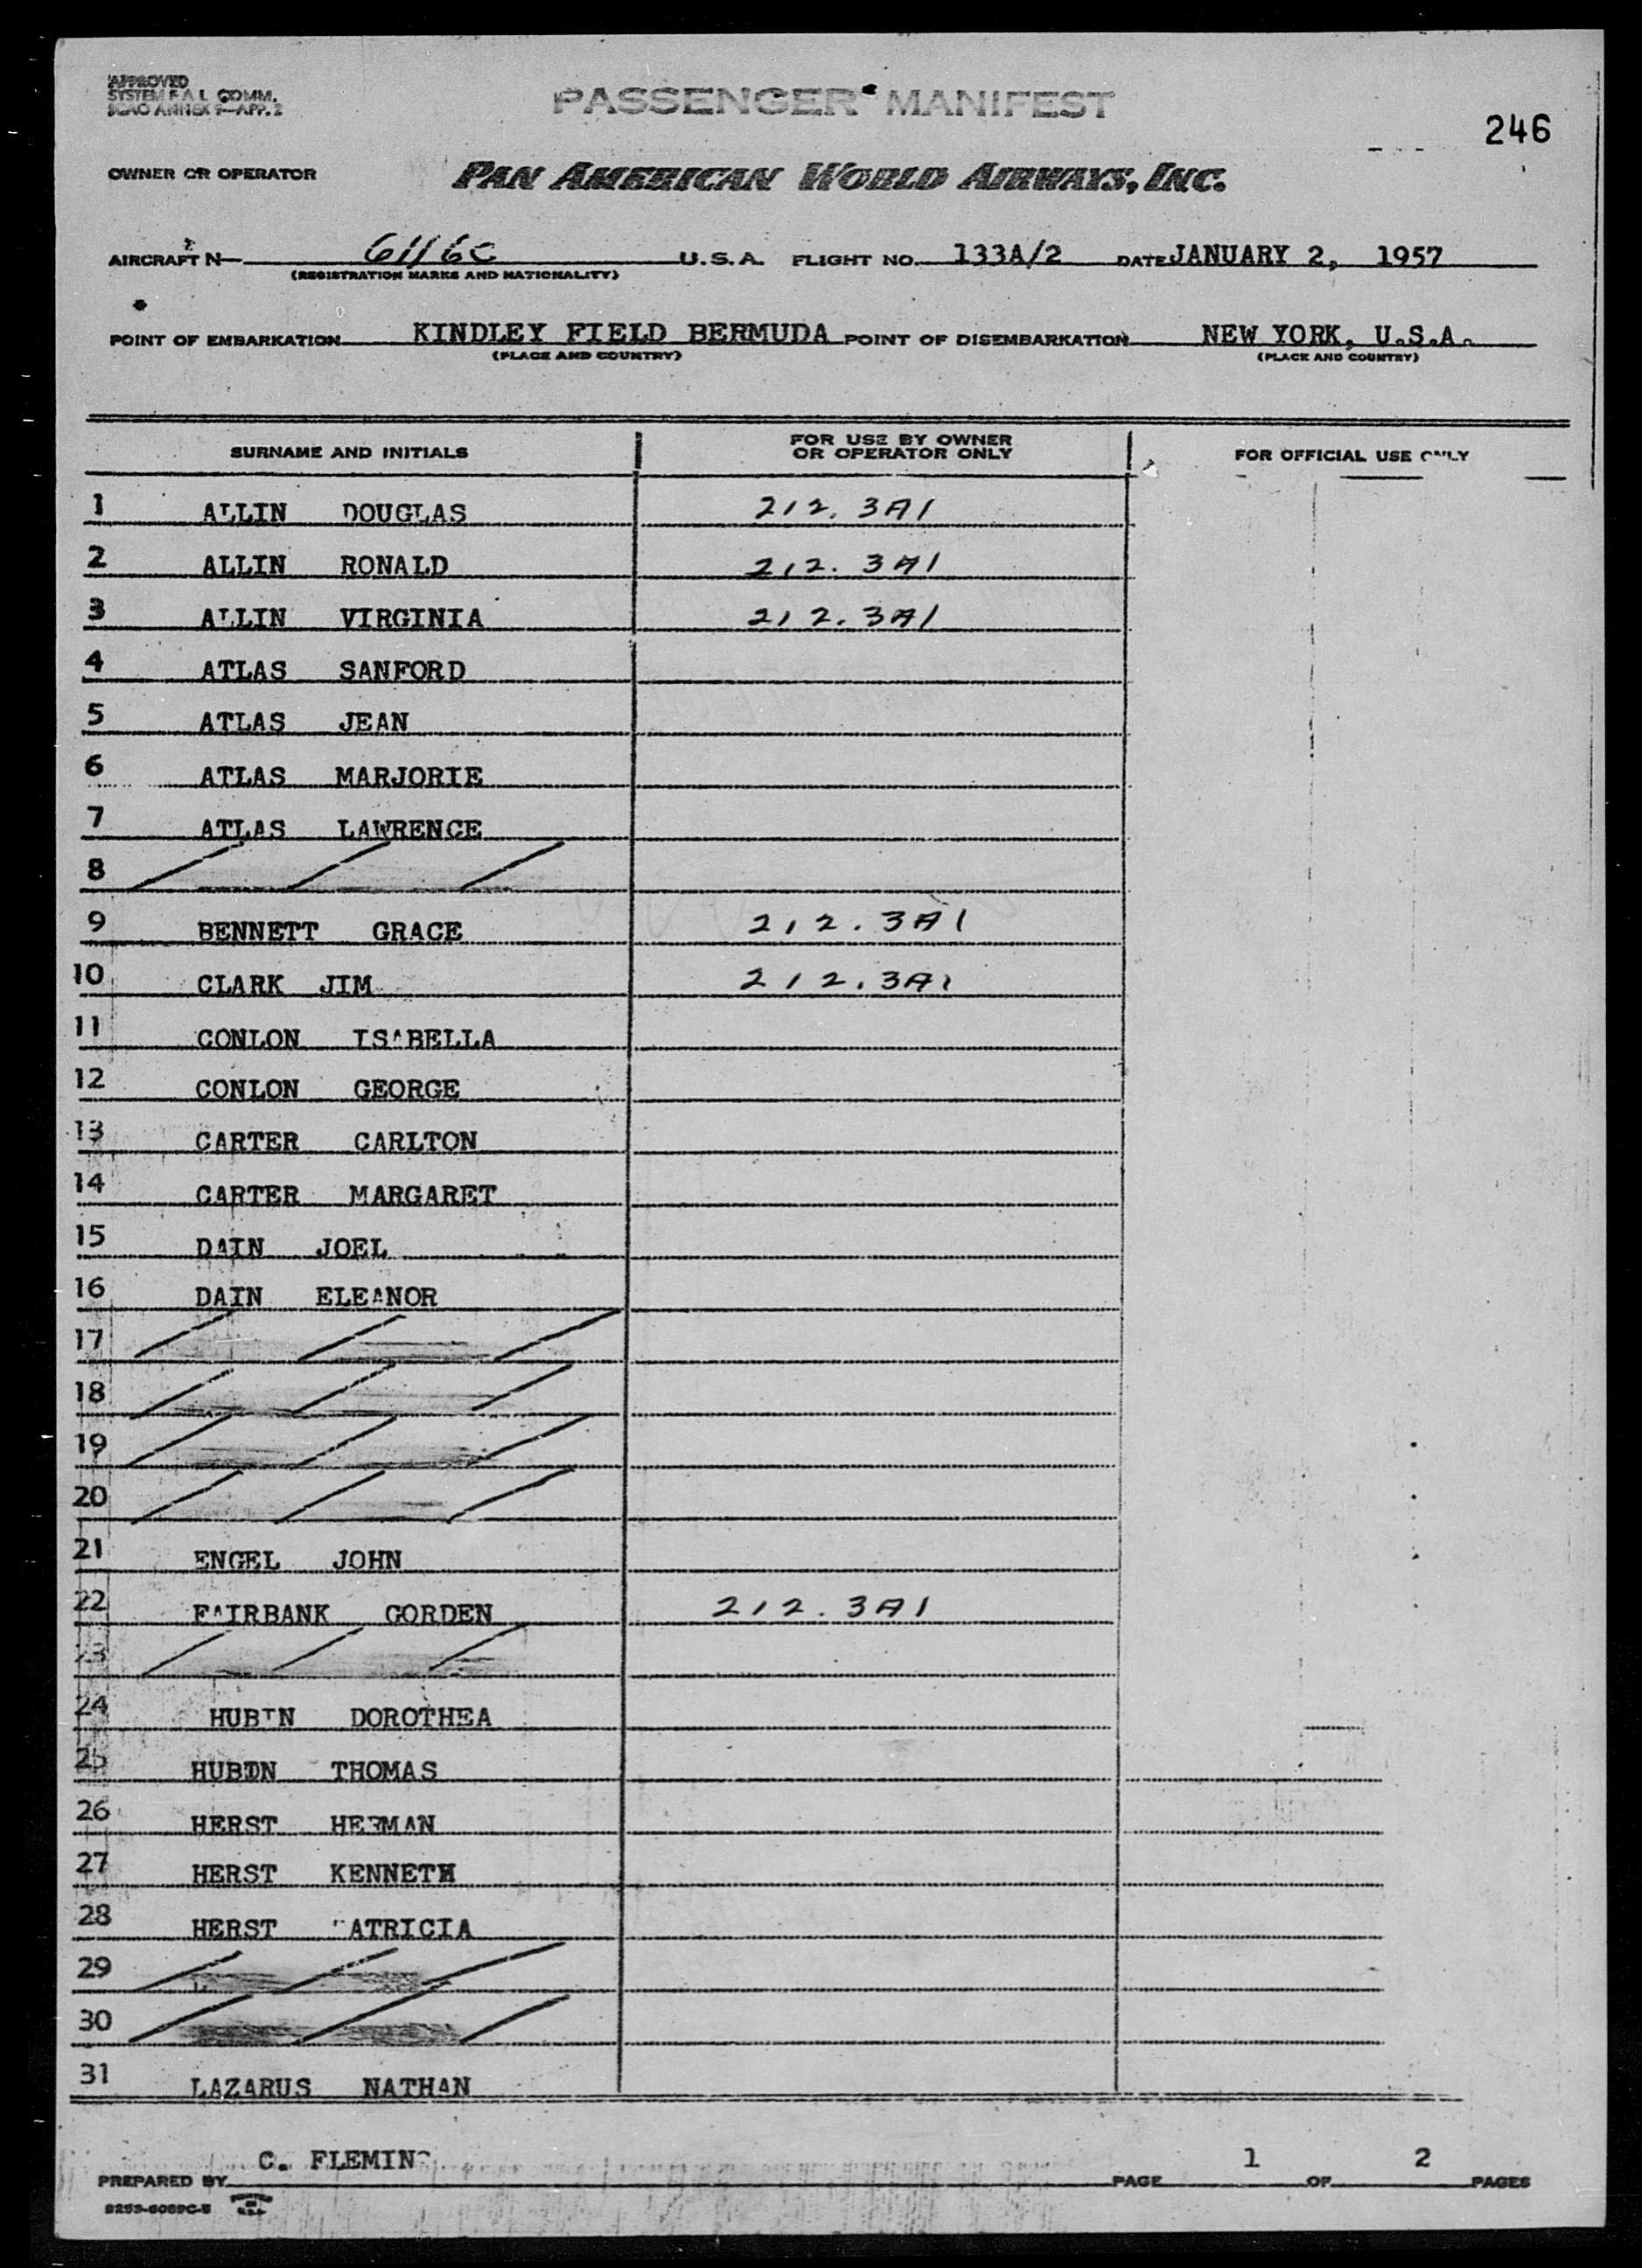 APPROVED
SYSTEM F A L COMM.
ICAO ANNEX 9—APP. 2
PASSENGER MANIFEST
246
OWNER OR OPERATOR PAN AMERICAN WORLD AIRWAYS, INC.
AIRCRAFT N— 6116C U.S.A. FLIGHT NO. 133A/2 DATE JANUARY 2, 1957
(REGISTRATION MARKS AND NATIONALITY)
POINT OF EMBARKATION KINDLEY FIELD BERMUDA POINT OF DISEMBARKATION NEW YORK, U.S.A.
(PLACE AND COUNTRY) (PLACE AND COUNTRY)
SURNAME AND INITIALS FOR USE BY OWNER OR OPERATOR ONLY FOR OFFICIAL USE ONLY
1 ALLIN DOUGLAS 212.3A1
2 ALLIN RONALD 212.3A1
3 ALLIN VIRGINIA 212.3A1
4 ATLAS SANFORD
5 ATLAS JEAN
6 ATLAS MARJORIE
7 ATLAS LAWRENCE
8
9 BENNETT GRACE 212.3A1
10 CLARK JIM 212.3A1
11 CONLON ISABELLA
12 CONLON GEORGE
13 CARTER CARLTON
14 CARTER MARGARET
15 DAIN JOEL
16 DAIN ELEANOR
17
18
19
20
21 ENGEL JOHN
22 FAIRBANK GORDEN 212.3A1
23
24 HUBIN DOROTHEA
25 THOMAS
26 HERST HERMAN
27 HERST KENNETH
28 HERST PATRICIA
29
30
31 LAZARUS NATHAN
PREPARED BY C. FLEMING PAGE 1 OF 2 PAGES